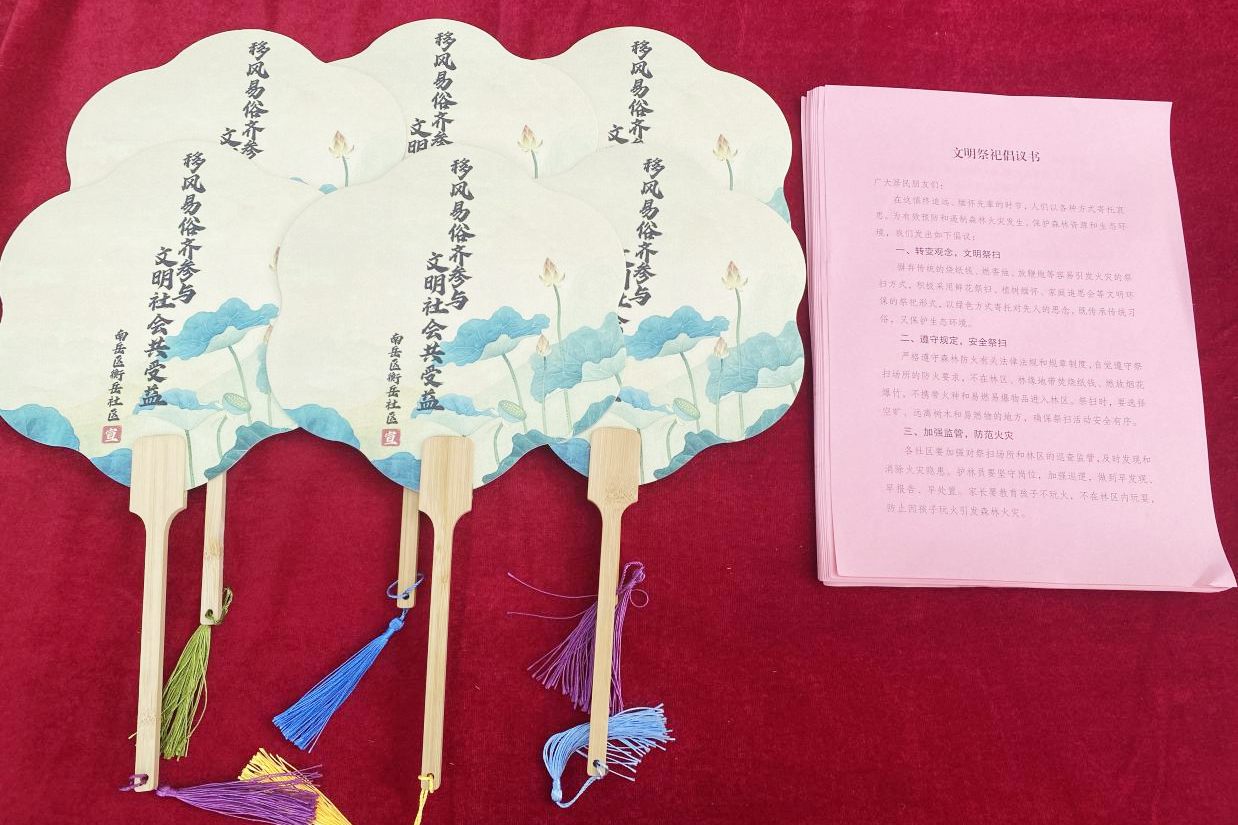 移风易俗齐参
文
移风易俗齐参
文明
移风易俗齐参
文
移风易俗齐参与
文明社会共受益
南岳区衡岳社区
宣
移风易俗齐参与
文明社会共受益
南岳区衡岳社区
宣
移风易俗齐参与
文明祭祀倡议书
广大居民朋友们：
在这慎终追远、缅怀先辈的时节，人们以各种方式寄托哀
思。为有效预防和遏制森林火灾发生，保护森林资源和生态环
境，我们发出如下倡议：
一、转变观念，文明祭扫
摒弃传统的烧纸钱、燃香烛、放鞭炮等容易引发火灾的祭
扫方式，积极采用鲜花祭扫、植树缅怀、家庭追思会等文明环
保的祭祀形式，以绿色方式寄托对先人的思念，既传承传统习
俗，又保护生态环境。
二、遵守规定，安全祭扫
严格遵守森林防火有关法律法规和规章制度，自觉遵守祭
扫场所的防火要求，不在林区、林缘地带焚烧纸钱、燃放烟花
爆竹，不携带火种和易燃易爆物品进入林区。祭扫时，要选择
空旷、远离树木和易燃物的地方，确保祭扫活动安全有序。
三、加强监管，防范火灾
各社区要加强对祭扫场所和林区的巡查监管，及时发现和
消除火灾隐患。护林员要坚守岗位，加强巡逻，做到早发现、
早报告、早处置。家长要教育孩子不玩火，不在林区内玩耍，
防止因孩子玩火引发森林火灾。